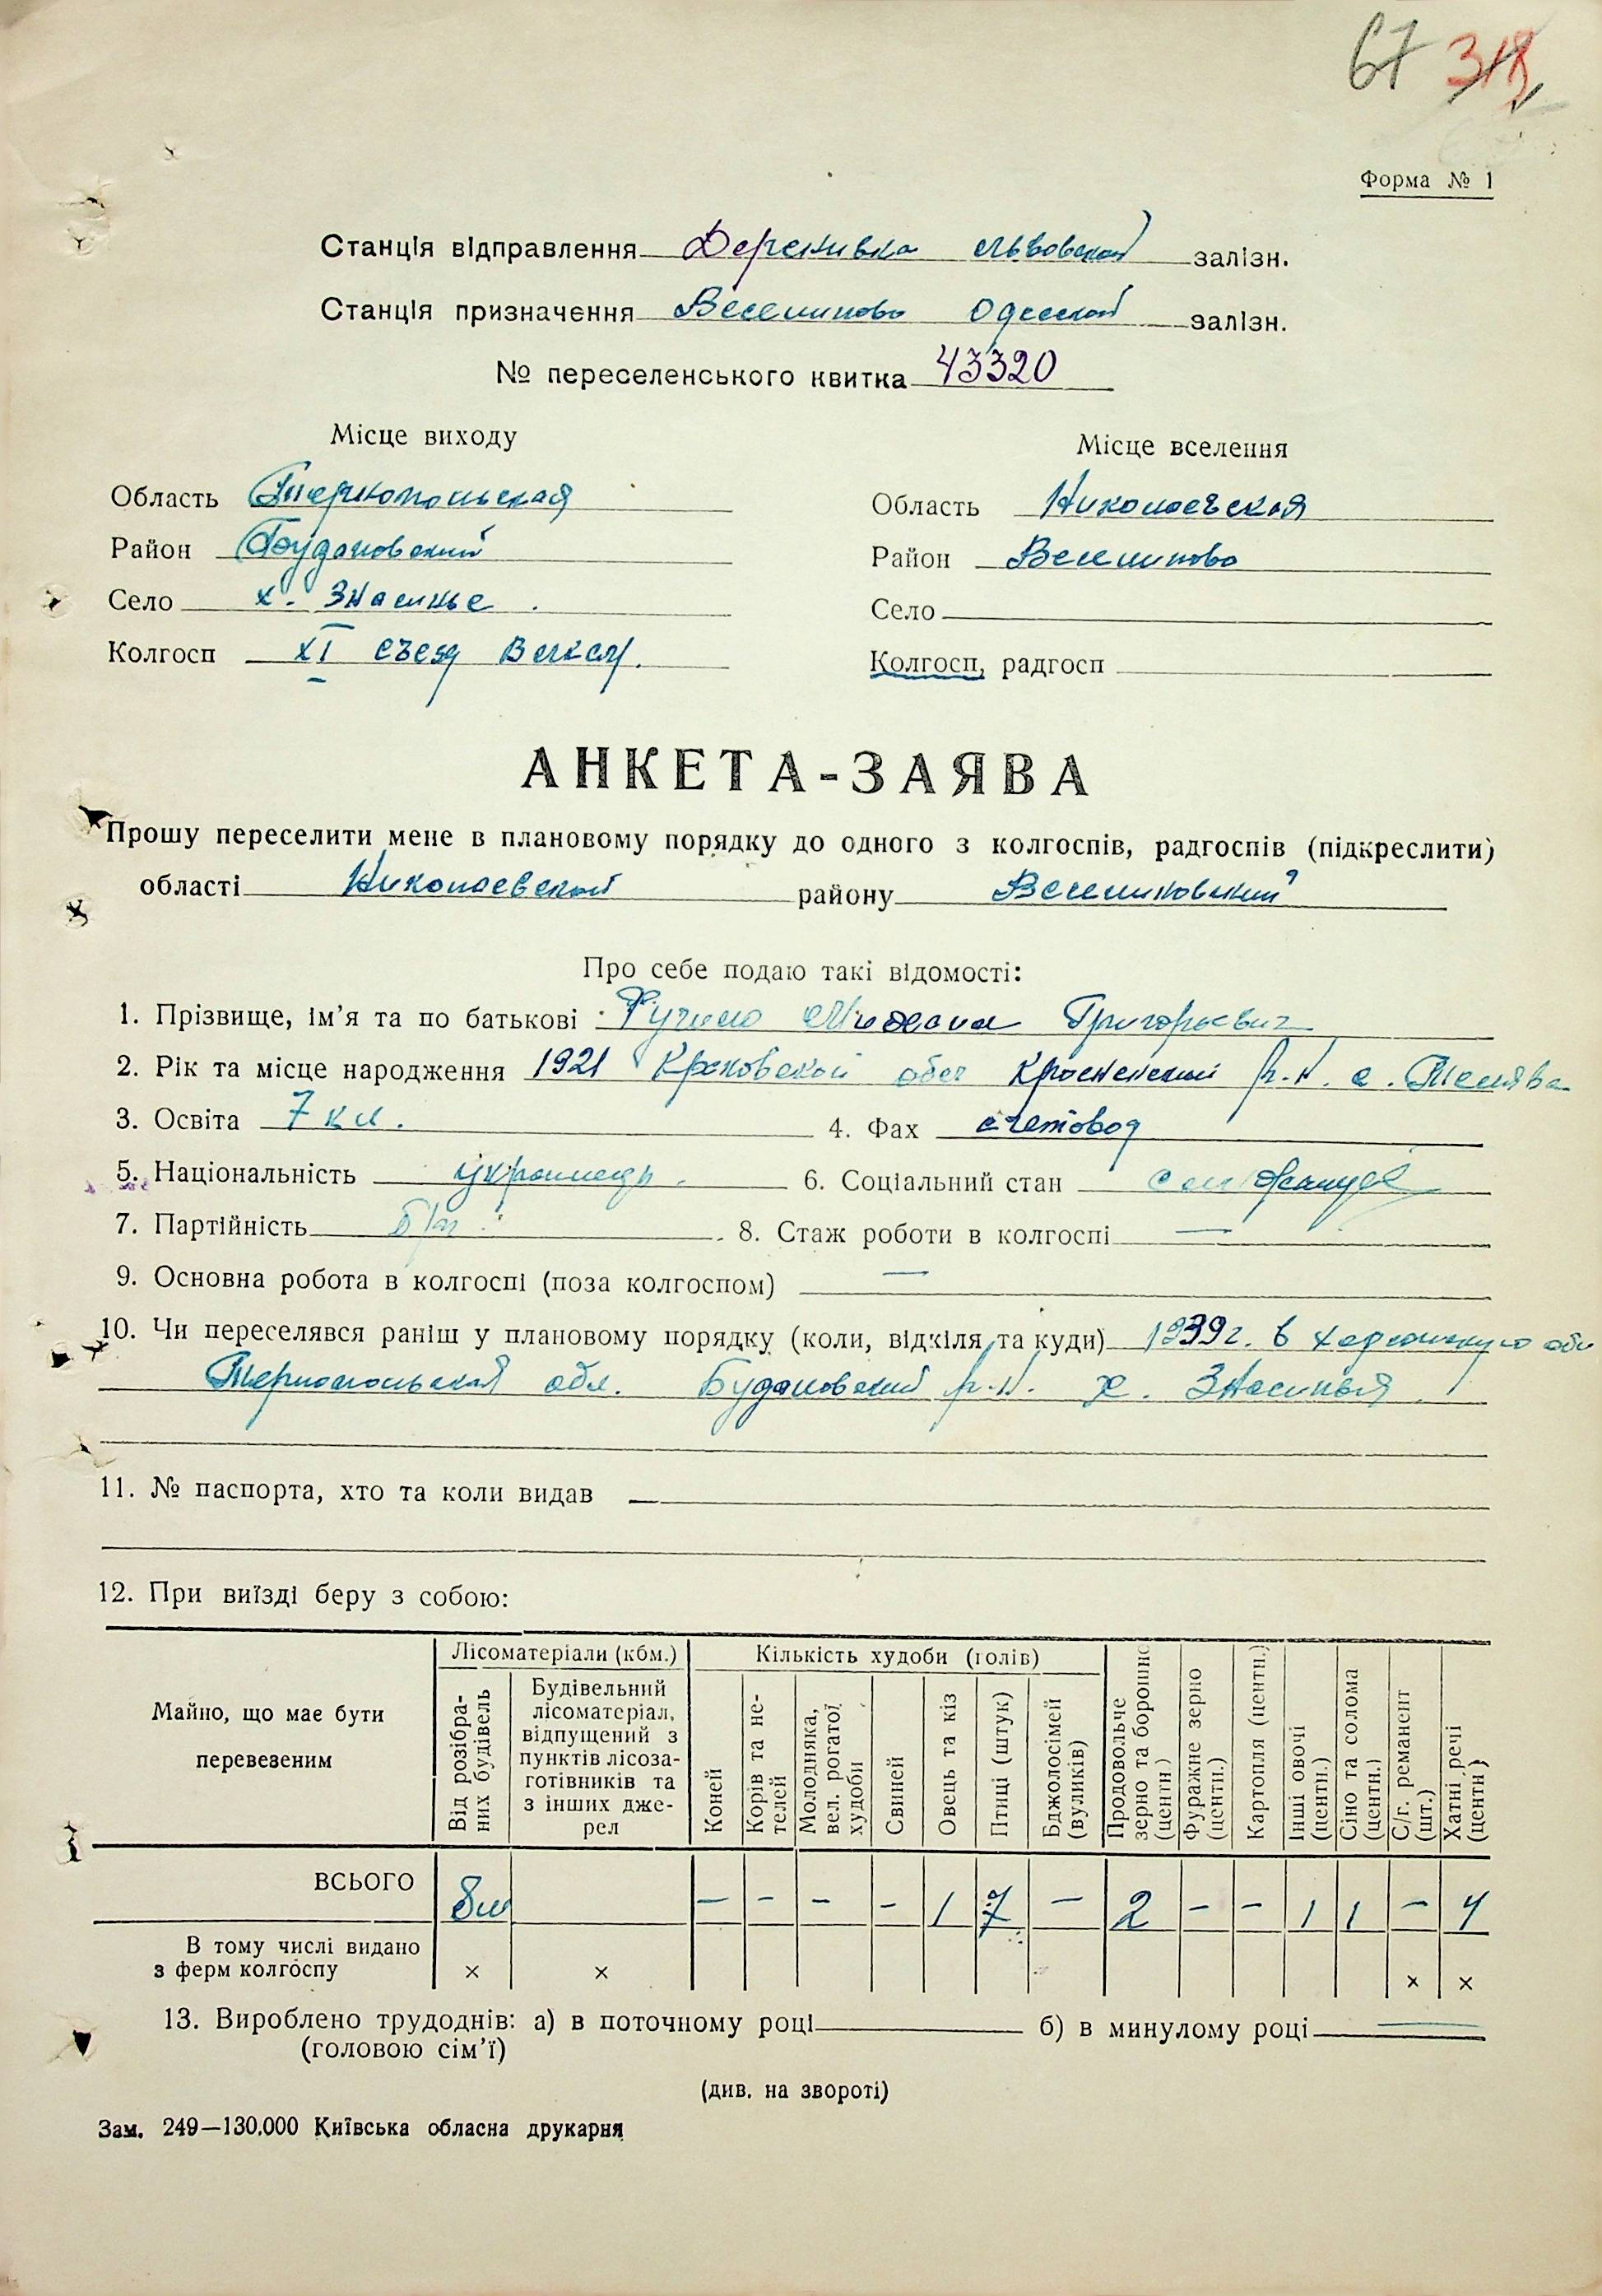 67 318
Форма № 1
Станція відправлення Деренивка Львовской залізн.
Станція призначення Веселиново Одесской залізн.
№ переселенського квитка 43320
Місце виходу
Місце вселення
Область Тернопольская
Область Николаевская
Район Будановский
Район Веселиново
Село х. Знасинье
Село
Колгосп XI съезд
Колгосп, радгосп
АНКЕТА-ЗАЯВА
Прошу переселити мене в плановому порядку до одного з колгоспів, радгоспів (підкреслити)
області Николаевской району Веселиновский
Про себе подаю такі відомості:
1. Прізвище, ім'я та по батькові Григорьевич
2. Рік та місце народження 1921 Краковской обл Кросненский р-н. с.
3. Освіта 7 кл. 4. Фах счетовод
5. Національність украинец 6. Соціальний стан
7. Партійність б/п 8. Стаж роботи в колгоспі —
9. Основна робота в колгоспі (поза колгоспом) —
10. Чи переселявся раніш у плановому порядку (коли, відкіля та куди) 1939г. в
Тернопольская обл. Будановский р-н. х. Знасинья
11. № паспорта, хто та коли видав —
12. При виїзді беру з собою:
Майно, що має бути перевезеним
Лісоматеріали (кбм.)
Кількість худоби (голів)
Від розібраних будівель
Будівельний лісоматеріал, відпущений з пунктів лісозаготівників та з інших джерел
Коней
Корів та нетелей
Молодняка, вел. рогатої худоби
Свиней
Овець та кіз
Птиці (штук)
Бджолосімей (вуликів)
Продовольче зерно та борошно (центн.)
Фуражне зерно (центн.)
Картопля (центн.)
Інші овочі (центн.)
Сіно та солома (центн.)
С/г. реманент (шт.)
Хатні речі (центн)
ВСЬОГО 8м — — — — 1 7 — 2 — — 1 1 — 4
В тому числі видано
з ферм колгоспу × × × ×
13. Вироблено трудоднів: а) в поточному році б) в минулому році —
(головою сім'ї)
(див. на звороті)
Зам. 249—130.000 Київська обласна друкарня